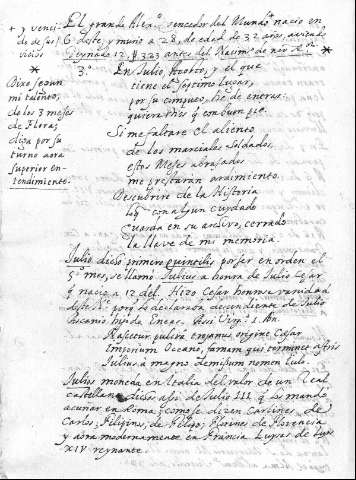 + y venci-
do de sus
vicios
El grande Alex.o vencedor del Mundo nacio en
6 deste, y murio a 28, de edad de 32 años, aviendo
Reynado 12, 323 antes del Nacim.to de
*
Dixo segun
mi talento,
de los 3 meses
de Flora;
diga por su
turno aora
superior en-
tendimiento.
*
3.a
En Julio, Agosto, y el que
tiene el septimo lugar,
por su
Si me faltare el aliento
de los marciales soldados,
estos Meses abrasados
me prestaràn ardimiento.
Descubrire de la Historia
lo q con algun cuydado
Guarda en su archivo, cerrado
la llave de mi memoria.
Julio dicho primero quincilis, por ser en orden el
5.o mes, se llamò Julius a honra de Julio Cesar
q nacio a 12 del. Hizo Cesar
deste N.e porq se declarava descendiente de Julio
Ascanio hijo de Eneas. Assi Virg.o 1. Æn.
Nascetur pulcrâ troianus origine Cæsar
Imperium Oceano, famam qui terminet astris
Iulius à magno demissum nomen Iulo.
Julios moneda en Italia del valor de un Real
castellano dichos assi de Julio III q los mando
acuñar en Roma; como se dizen Carlines de
Carlos, Filipinos, de Felipo; Florines de Florencia
y aora modernamente en Francia Luyses de Luys
XIV reynante.